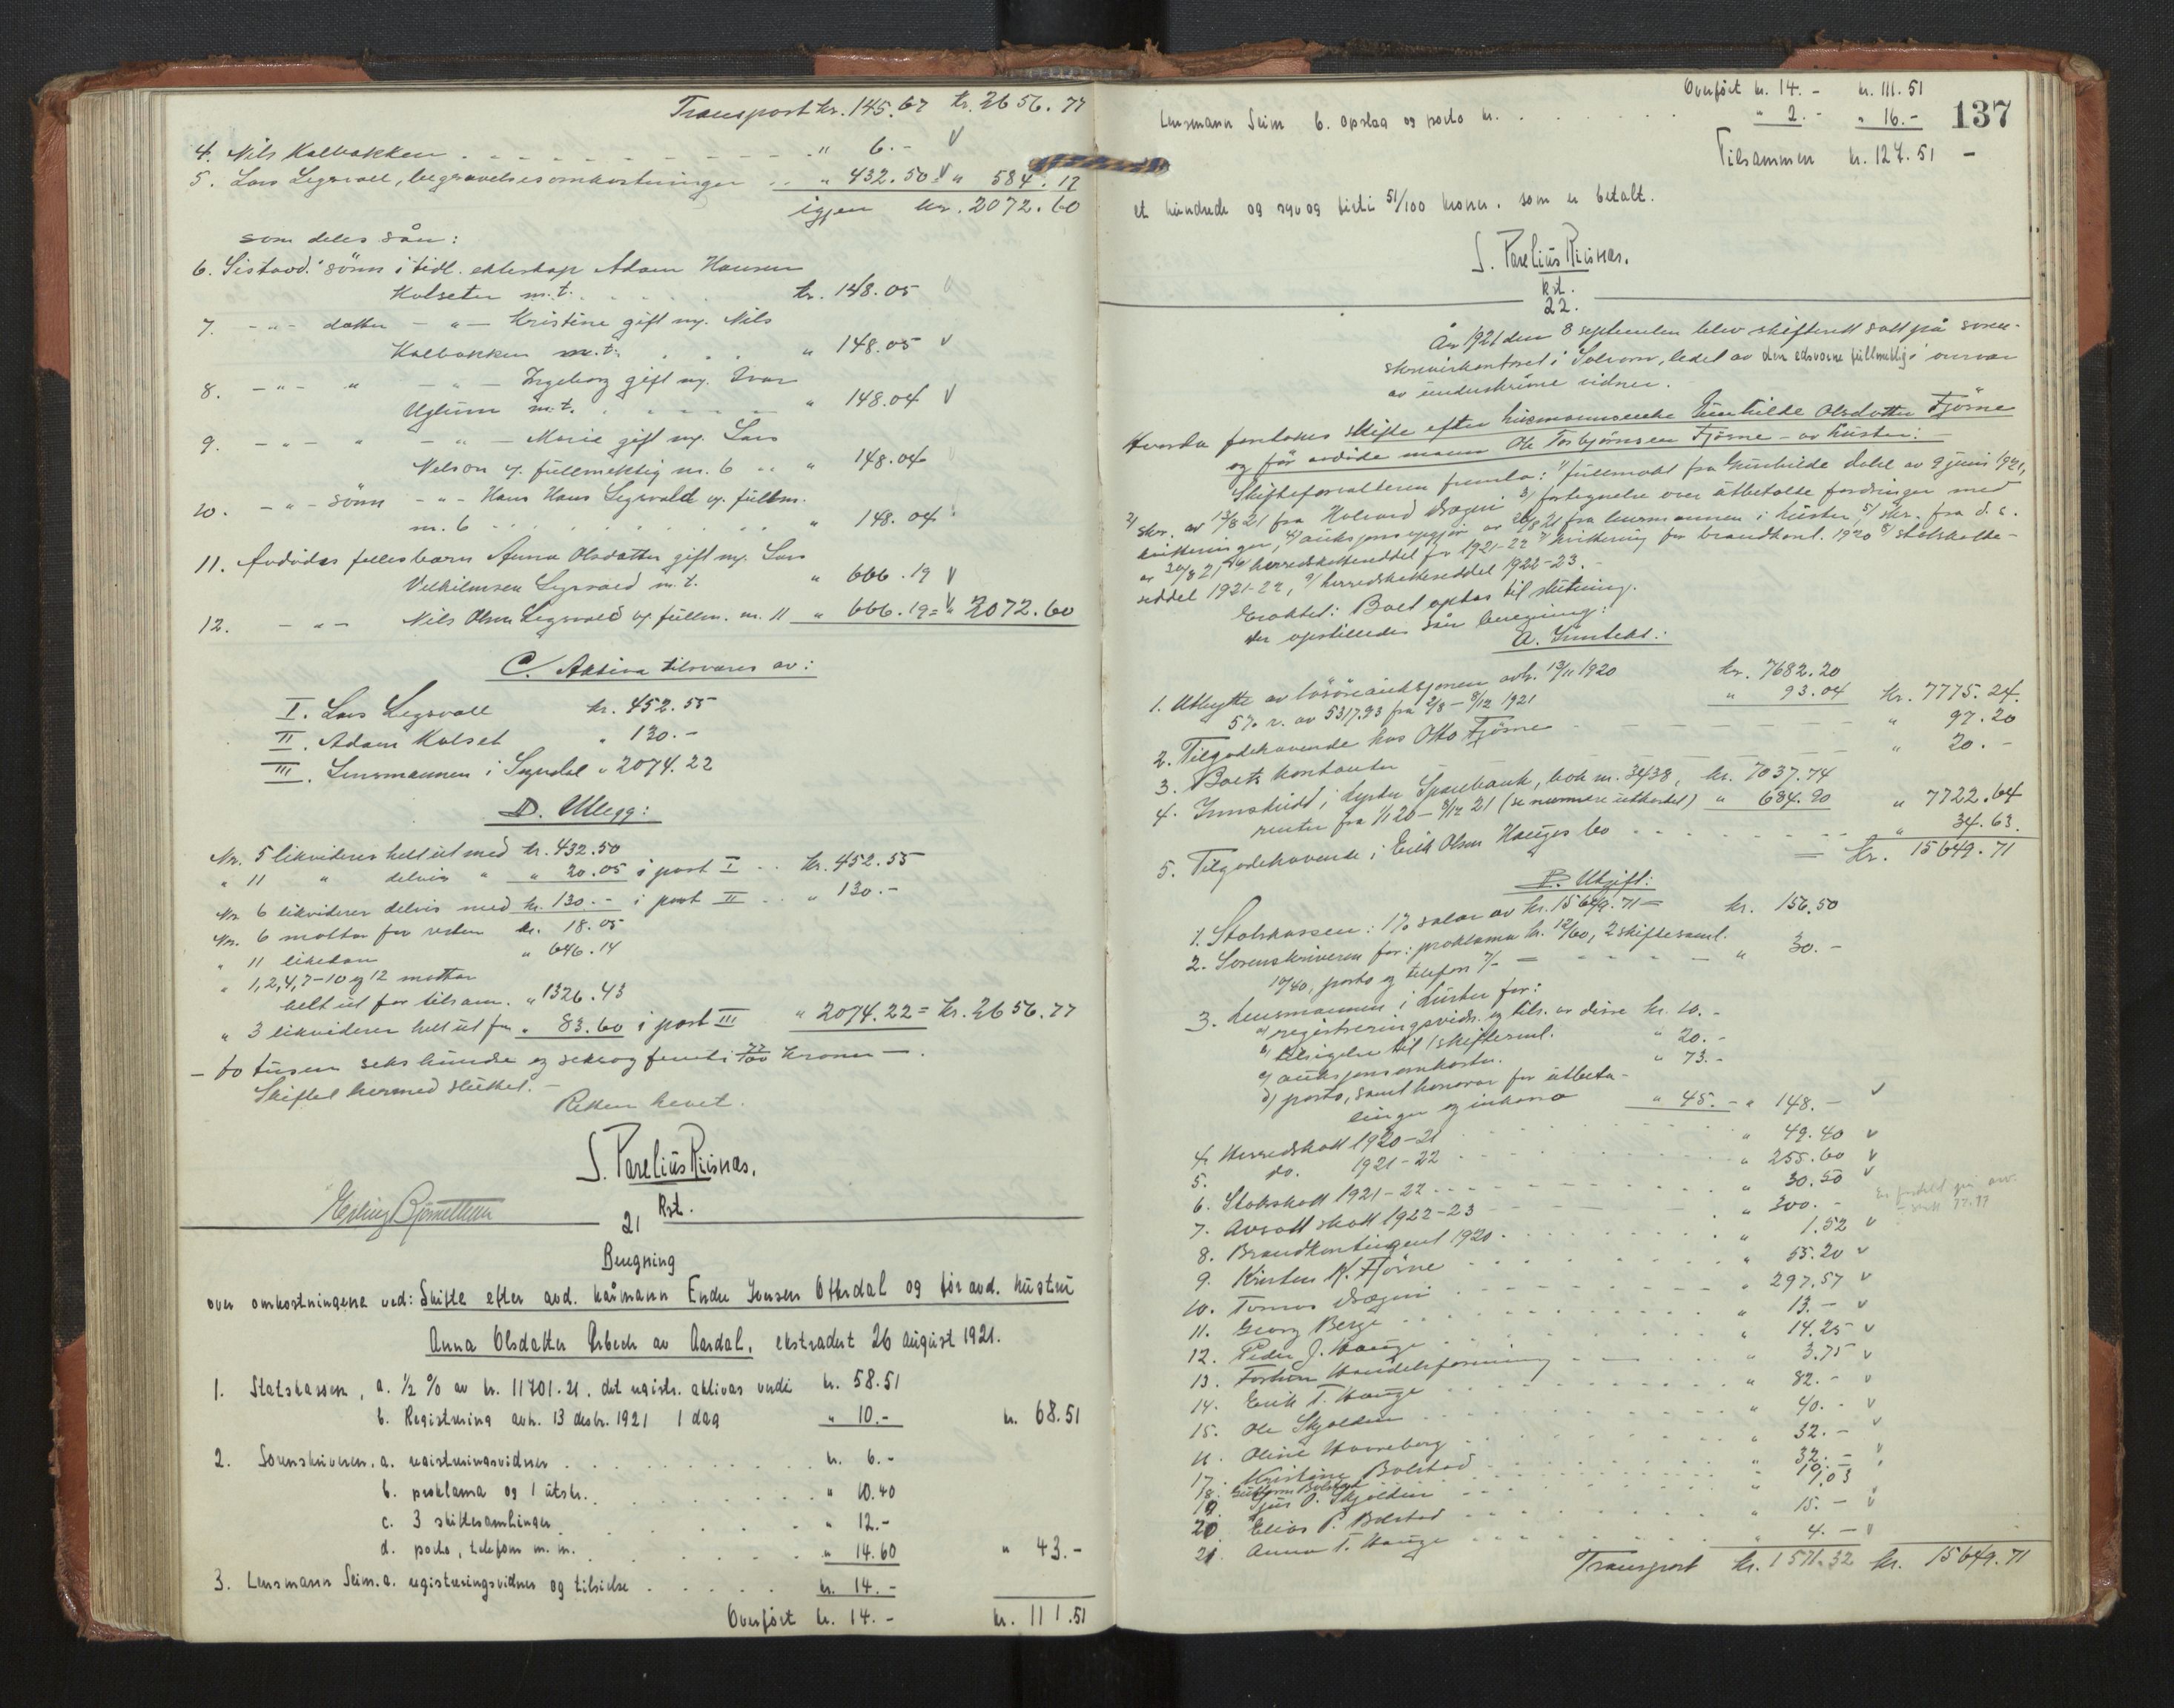 Transport kr. 145.67 kr. 2656.77
4. Nils Kalbakken " 6.-
5. Lars Legrvall, begravelsesomkostninger " 432.50 = " 584.17
igjen kr. 2072.60
som deles sån:
6. Sistavd.' sönn i tidl. ekteskap Adam Hansen
Kolseter m.t. kr. 148.05
7. -"- datter -"- Kristine gift m. Nils
Kalbakken m.t. " 148.05
8. -"- " -"- Ingeborg gift m. Ivar
Uglum m.t. " 148.04
9. -"- " -"- Marie gift m. Lars
Nelson v. fullmektig nr. 6 " 148.04
10. -"- sönn -"- Hans Hans Legrvald v. fullm.
nr. 6 " 148.04
11. Avdödes fellesbarn Anna Olsdatter gift m. Lars
Vilhelmsen Legrvold m.t. " 666.19
12. -"- Nils Olsen Legrvold v. fullm. nr. 11 " 666.19 = " 2072.60
C. Aktiva tilsvares av:
I. Lars Legrvall kr. 452.55
II. Adam Kolset " 130.-
III. Lensmannen i Sogndal " 2074.22
D. Utlegg:
Nr. 5 likvideres helt ut med kr. 432.50
" 11 " delvis " " 20.05 i post I kr. 452.55
Nr. 6 likvideres delvis med kr. 130.- i post II " 130.-
Nr. 6 mottar for resten kr. 18.05
" 11 likedan " 646.14
" 1, 2, 4, 7-10 og 12 mottar
helt ut for tilsam. " 1326.43
" 3 likvideres helt ut for " 83.60 i post III " 2074.22 = kr. 2656.77
- to tusen seks hundre og seksogfemti 77/100 kroner -.
Skiftet hermed sluttet. -
Retten hevet.
S. Parelius Riisnæs.
kst.
21
Beregning
over omkostningene ved: Skifte efter avd. kårmann Endre Jensen Ofterdal og før avd. hustru
Anna Olsdatter Arbech av Aardal. ekstradert 26 august 1921.
1. Statskassen, a. 1/2 % av kr. 11701.21, det registr. aktivas verdi kr. 58.51
b. Registrering avh. 13 desbr. 1921 1 dag " 10.- kr. 68.51
2. Sorenskriveren. a. registreringsvidner kr. 6.-
b. proklama og 1 utskr. " 10.40
c. 3 skiftesamlinger " 12.-
d. porto, telefon m. m. " 14.60 " 43.-
3. Lensmann Seim. a. registreringsvidner og tilsielse kr. 14.-
Overført kr. 14.- kr. 111.51
137
Overført kr. 14.- kr. 111.51
Lensmann Seim b. opslag og porto kr. " 2.- " 16.-
Tilsammen kr. 127.51 -
et hundrede og syv og tieti 51/100 kroner. som er betalt.
S. Parelius Riisnæs.
kst.
22.
År 1921 den 8 september blev skifterett satt på soren-
skriverkontoret i Solvorn, ledet av den edsvorne fullmektig i overvær
av underskrivne vidner.
Hvorda foretokes skifte efter husmannsenke Gunhilde Olsdatter Fjörne
og för avdöde mann Ole Torbjörnsen Fjörne - av Luster: -
Skifteforvalteren fremla: 1/ fullmakt fra Gunhilde datert av 9 juni 1921,
2/ skr. av 13/8 21 fra Halvard Drægni 3/ fortegnelse over utbetalte fordringer med
kvitteringer, 4/ auksjonsopgjör av 26/8 21 fra lensmannen i Luster, 5/ skr. fra d. s.
av 30/8 21, 6/ herredskatteseddel for 1921-22 7/ kvittering for brandkont. 1920 8/ statskatte-
seddel 1921-22, 9/ herredskatteseddel 1922-23. -
Eraktet: Boet optas til slutning.
Der opstilledes sån beregning:
A. Inntekt:
1. Utbytte av lösöreauksjonen avh. 13/11 1920 kr. 7682.20
5% r. av 5317.93 fra 2/8 - 8/12 1921 " 93.04 kr. 7775.24
2. Tilgodehavende hos Otto Fjörne " 97.20
3. Boets kontanter " 20.-
4. Innskudd i Lyster Sparebank, bok nr. 3438, kr. 7037.74
renter fra 1/1 20 - 8/12 21 (se nærmere utkastet) " 684.90 " 7722.64
5. Tilgodehavende i Erik Olsen Hauges bo " 34.63
= kr. 15649.71
B. Utgift:
1. Statskassen: 1% salar av kr. 15649.71 = kr. 156.50
2. Sorenskriveren for: proklama kr. 12/60, 2 skiftesaml.
10/40, porto og telefon 7/- = " 30.-
3. Lensmannen i Luster for:
a) registreringsvidn. og tils. av disse kr. 10.-
b) tilsigelse til 1 skiftesml. " 20.-
c) auksjonsomkostn. " 73.-
d) porto, samt honorar for utbeta-
linger og inkasso " 45.- " 148.-
4. Herredskatt 1920-21 " 49.40
5. do. 1921-22 " 255.60
6. Statsskatt 1921-22 " 30.50
7. Avsatt skatt 1922-23 " 300.-
8. Brandkontingent 1920 " 1.52
9. Kristen K. Fjörne " 55.20
10. Tomas Drægni " 297.57
11. Georg Berge " 13.-
12. Peder J. Hauge " 14.25
13. Fortun Handelsforening " 3.75
14. Erik T. Hauge " 82.-
15. Ole Skjolden " 40.-
16. Oline Havreberg " 32.-
17. Kristine Bolstad " 32.-
18. Guttorm Bolstad
19. Sjur O. Skjolden
20. Elias P. Bolstad " 15.-
21. Anna T. Hauge " 4.-
Transport kr. 1571.32 kr. 15649.71